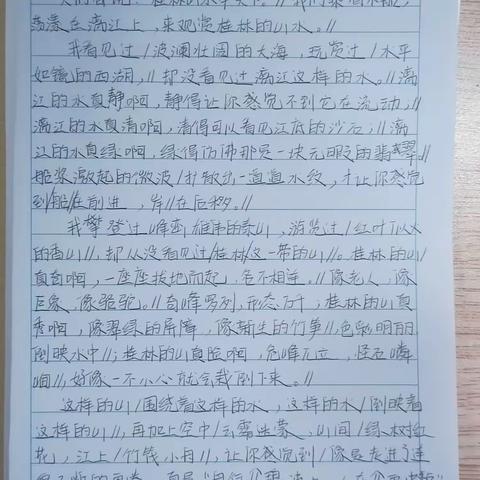 荡漾在漓江上，来观赏桂林的山水。//
我看见过/波澜壮阔的大海，玩赏过/水平
如镜的西湖，//却没看见过漓江这样的水。//漓
江的水真静啊，静得让你感觉不到它在流动；//
漓江的水真清啊，清得可以看见江底的沙石；//漓
江的水真绿啊，绿得仿佛那是一块无瑕的翡翠。//
船桨激起的微波/扩散出一道道水纹，才让你感觉
到/船/在前进，岸//在后移。
我攀登过/峰峦雄伟的泰山，游览过/红叶似火
的香山//，却从没看见过/桂林/这一带的山//。桂林的山
真奇啊，一座座拔地而起，各不相连。//像老人，像
巨象，像骆驼。//奇峰罗列，形态万千；桂林的山真
秀啊，像翠绿的屏障，像新生的竹笋//色彩明丽
倒映水中//；桂林的山真险啊，危峰兀立，怪石嶙
峋//，好像一不小心就会栽倒下来。//
这样的山/围绕着这样的水，这样的水/倒映着
这样的山//，再加上空中/云雾迷蒙，山间/绿树红
花，江上/竹筏小舟//，让你感觉到/像是走进了连